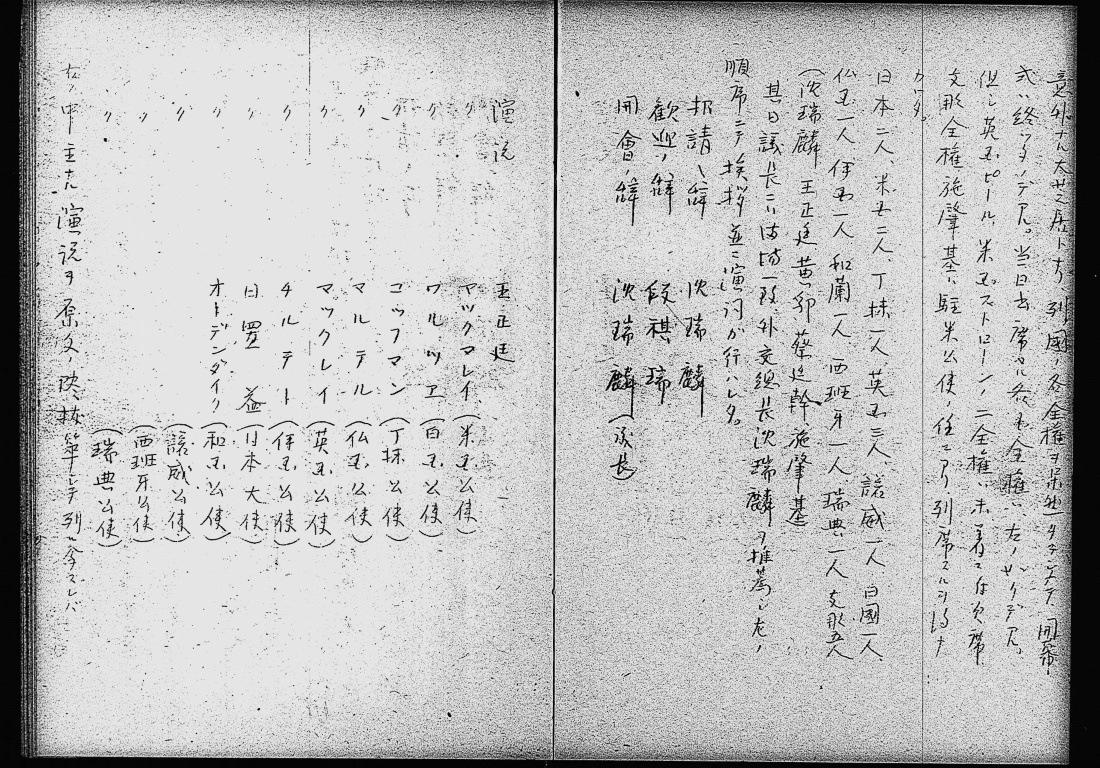 意外ナ大芝居トナリ列國ノ各全権ヲ呆然タラシメテ開幕
式ハ終ツタノデアル。当日出席セル各国全権ハ左ノ如クデアル。
但シ英国ピール、米国ストローン二全権ハ未着ニ付欠席
支那全権施肇基ハ駐米公使ノ任ニアリ列席スルヲ得ナ
カツタ。
日本二人、米国二人、丁抹一人、英国三人、諾威一人、白國一人、
仏国一人、伊国一人、和蘭一人、西班牙一人、瑞典一人、支那五人
(沈瑞麟 王正廷 黄郛 蔡廷幹 施肇基
其日議長ニハ満場一致、外交總長沈瑞麟ヲ推薦シ左ノ
順序ニテ挨拶並ニ演詞が行ハレタ。
招請ノ辞 沈瑞麟
歓迎ノ辞 段祺瑞
開會ノ辞 沈瑞麟(議長)
演説 王正廷
〃 マックマレイ(米国公使)
〃 ワルツヱ(白国公使)
〃 コッフマン(丁抹公使)
〃 マルテル(仏国公使)
〃 マックレイ(英国公使)
〃 チルテート(伊国公使)
〃 日置益(日本大使)
〃 オーデンダイク(和国公使)
〃 (諾威公使)
〃 (西班牙公使)
〃 (瑞典公使)
右ノ中主ナル演説ヲ原文 列挙スレバ